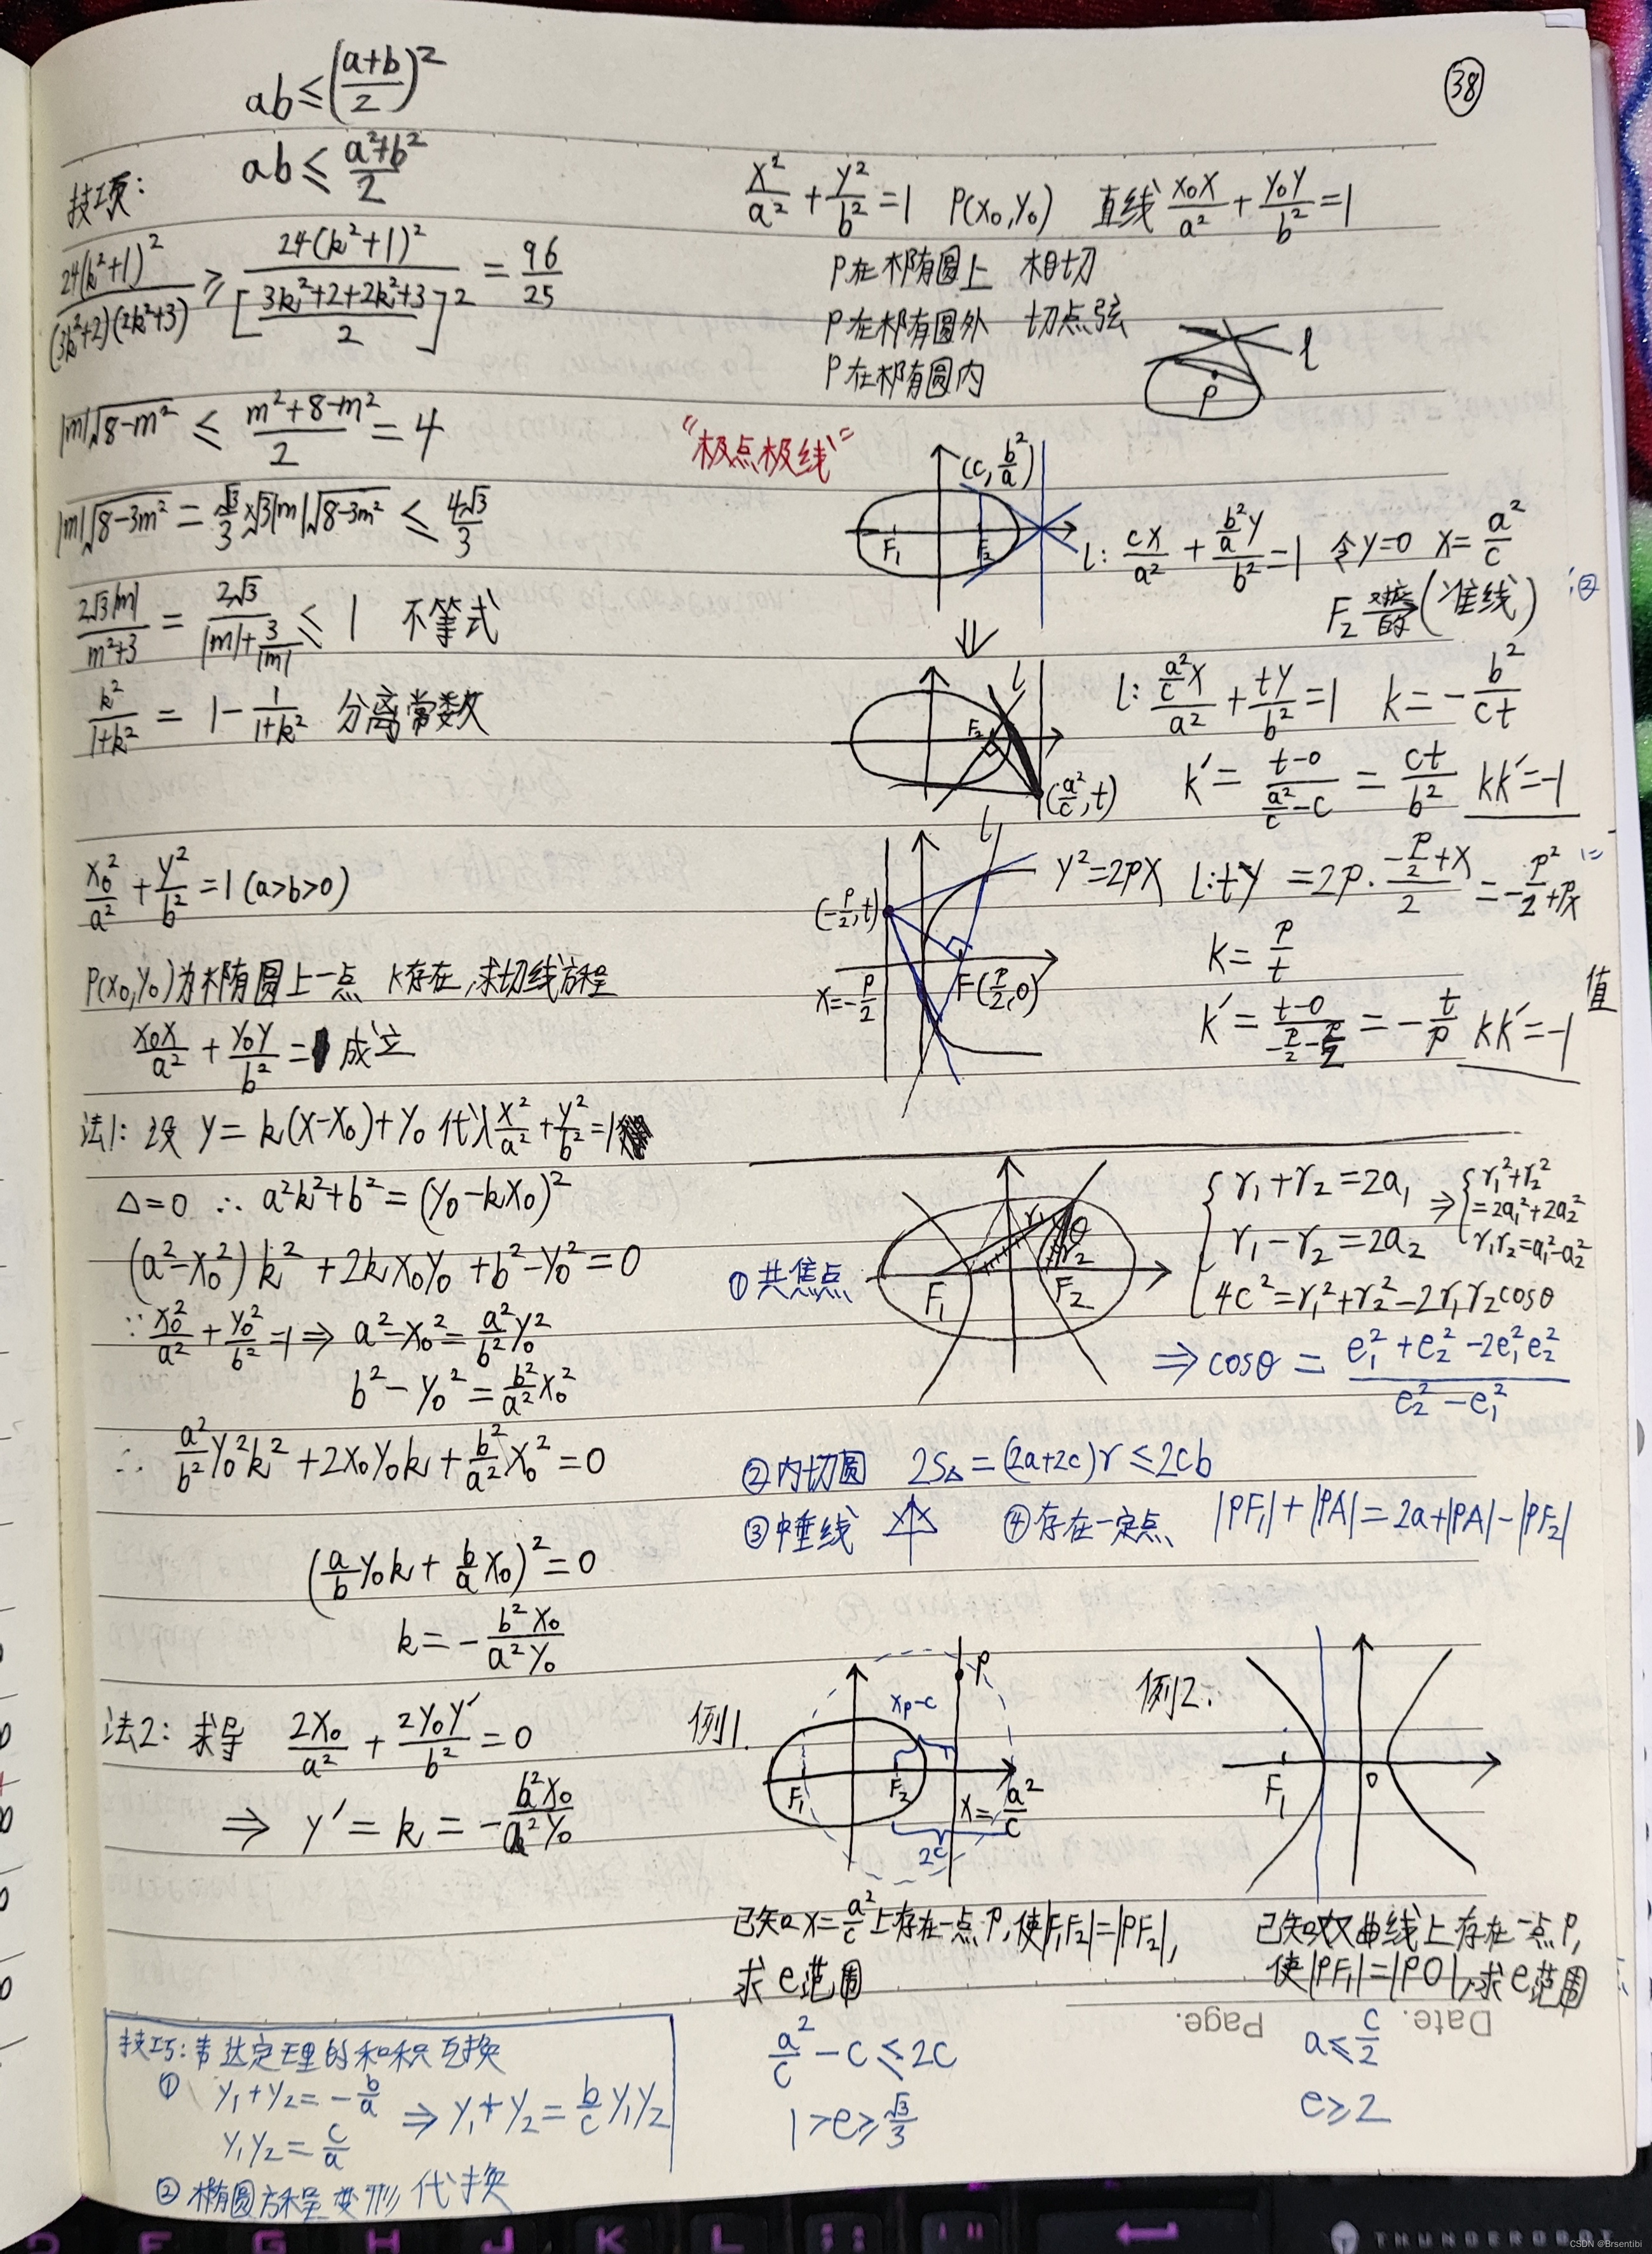 38
ab ≤ (a+b/2)²
ab ≤ a²+b²/2
技巧:
24(k²+1)²/(3k²+2)(2k²+3) ≥ 24(k²+1)²/[3k²+2+2k²+3/2]² = 96/25
|m|√8-m² ≤ m²+8-m²/2 = 4
|m|√8-3m² = √3/3 × √3|m|√8-3m² ≤ 4√3/3
2√3|m|/m²+3 = 2√3/|m|+3/|m| ≤ 1 不等式
k²/1+k² = 1 - 1/1+k² 分离常数
x₀²/a² + y²/b² = 1 (a>b>0)
P(x₀,y₀)为椭圆上一点 k存在,求切线方程
x₀x/a² + y₀y/b² = 1 成立
法1: 设 y = k(x-x₀)+y₀ 代入 x²/a² + y²/b² = 1
△=0 ∴ a²k²+b² = (y₀-kx₀)²
(a²-x₀²)k² + 2kx₀y₀ + b²-y₀² = 0
∵ x₀²/a² + y₀²/b² = 1 ⇒ a²-x₀² = a²/b² y₀²
b²-y₀² = b²/a² x₀²
∴ a²/b² y₀²k² + 2x₀y₀k + b²/a² x₀² = 0
(a/b y₀k + b/a x₀)² = 0
k = - b²x₀/a²y₀
法2: 求导 2x₀/a² + 2y₀y′/b² = 0
⇒ y′ = k = - b²x₀/a²y₀
技巧: 韦达定理的和积互换
① y₁+y₂ = - b/a
y₁y₂ = c/a
⇒ y₁+y₂ = b/c y₁y₂
② 椭圆方程变形代换
x²/a² + y²/b² = 1 P(x₀,y₀) 直线 x₀x/a² + y₀y/b² = 1
P在椭圆上 相切
P在椭圆外 切点弦
P在椭圆内
l
P
"极点极线"
(c, b²/a)
F₁ F₂
l: cx/a² + b²/a y/b² = 1 令y=0 x= a²/c
F₂ 对应的 (准线)
②
⇓
l
F₂
(a²/c, t)
l: a²/c x/a² + ty/b² = 1 k = - b²/ct
k′ = t-0/a²/c - c = ct/b² kk′=-1
l
(-p/2, t)
x=-p/2
F(p/2,0)
y²=2px l: ty = 2p· -p/2+x/2 = -p²/2+px
k = p/t
k′ = t-0/-p/2-p/2 = - t/p kk′=-1
值
① 共焦点
F₁ F₂
r₁ θ r₂
{ r₁+r₂ = 2a₁
r₁-r₂ = 2a₂
4c² = r₁²+r₂²-2r₁r₂cosθ
⇒ { r₁²+r₂²
=2a₁²+2a₂²
r₁r₂=a₁²-a₂²
⇒ cosθ = e₁²+e₂²-2e₁²e₂²/e₂²-e₁²
② 内切圆 2S△ = (2a+2c)r ≤ 2cb
③ 中垂线 ④ 存在一定点 |PF₁|+|PA| = 2a+|PA|-|PF₂|
例1.
P
xₚ-c
F₁ F₂
x= a²/c
2c
已知 x= a²/c 上存在一点P,使|F₁F₂|=|PF₂|,
求e范围
a²/c - c ≤ 2c
1>e≥ √3/3
例2.
F₁ O
已知双曲线上存在一点P,
使|PF₁|=|PO|,求e范围
Date. Page.
a≤ c/2
e≥2
D F G H J K L
THUNDEROBOT
CSDN @Brsentibi